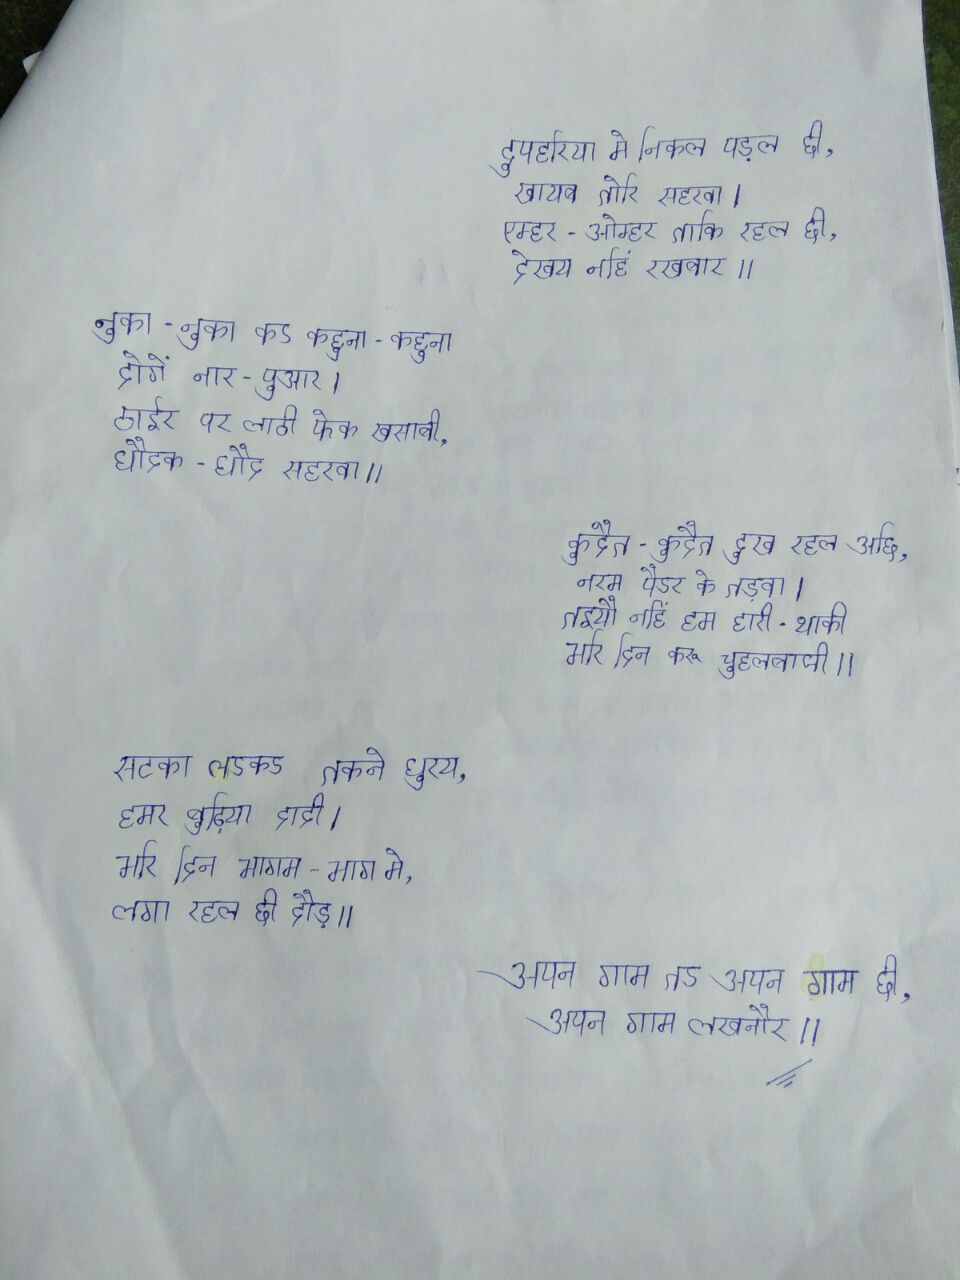 दुपहरिया मे निकल पड़ल छी,
खायब तोरि सहरबा।
एम्हर - ओम्हर ताकि रहल छी,
देखय नहिं रखबार॥
नुका - नुका कऽ कद्दुना - कद्दुना
दोगें नार - पुआर।
ठाईर पर लाठी फेक खसाबी,
घौदक - घौद सहरबा॥
कुदैत - कुदैत दुख रहल अछि,
नरम पैडर के तड़वा।
तइयौ नहिं हम हारी - थाकी
भरि दिन करू चुहलबाजी॥
सटका लऽकऽ तकने घुरय,
हमर बुढ़िया दादी।
भरि दिन भागम - भाग मे,
लगा रहल छी दौड़॥
अपन गाम तऽ अपन गाम छी,
अपन गाम लखनौर॥